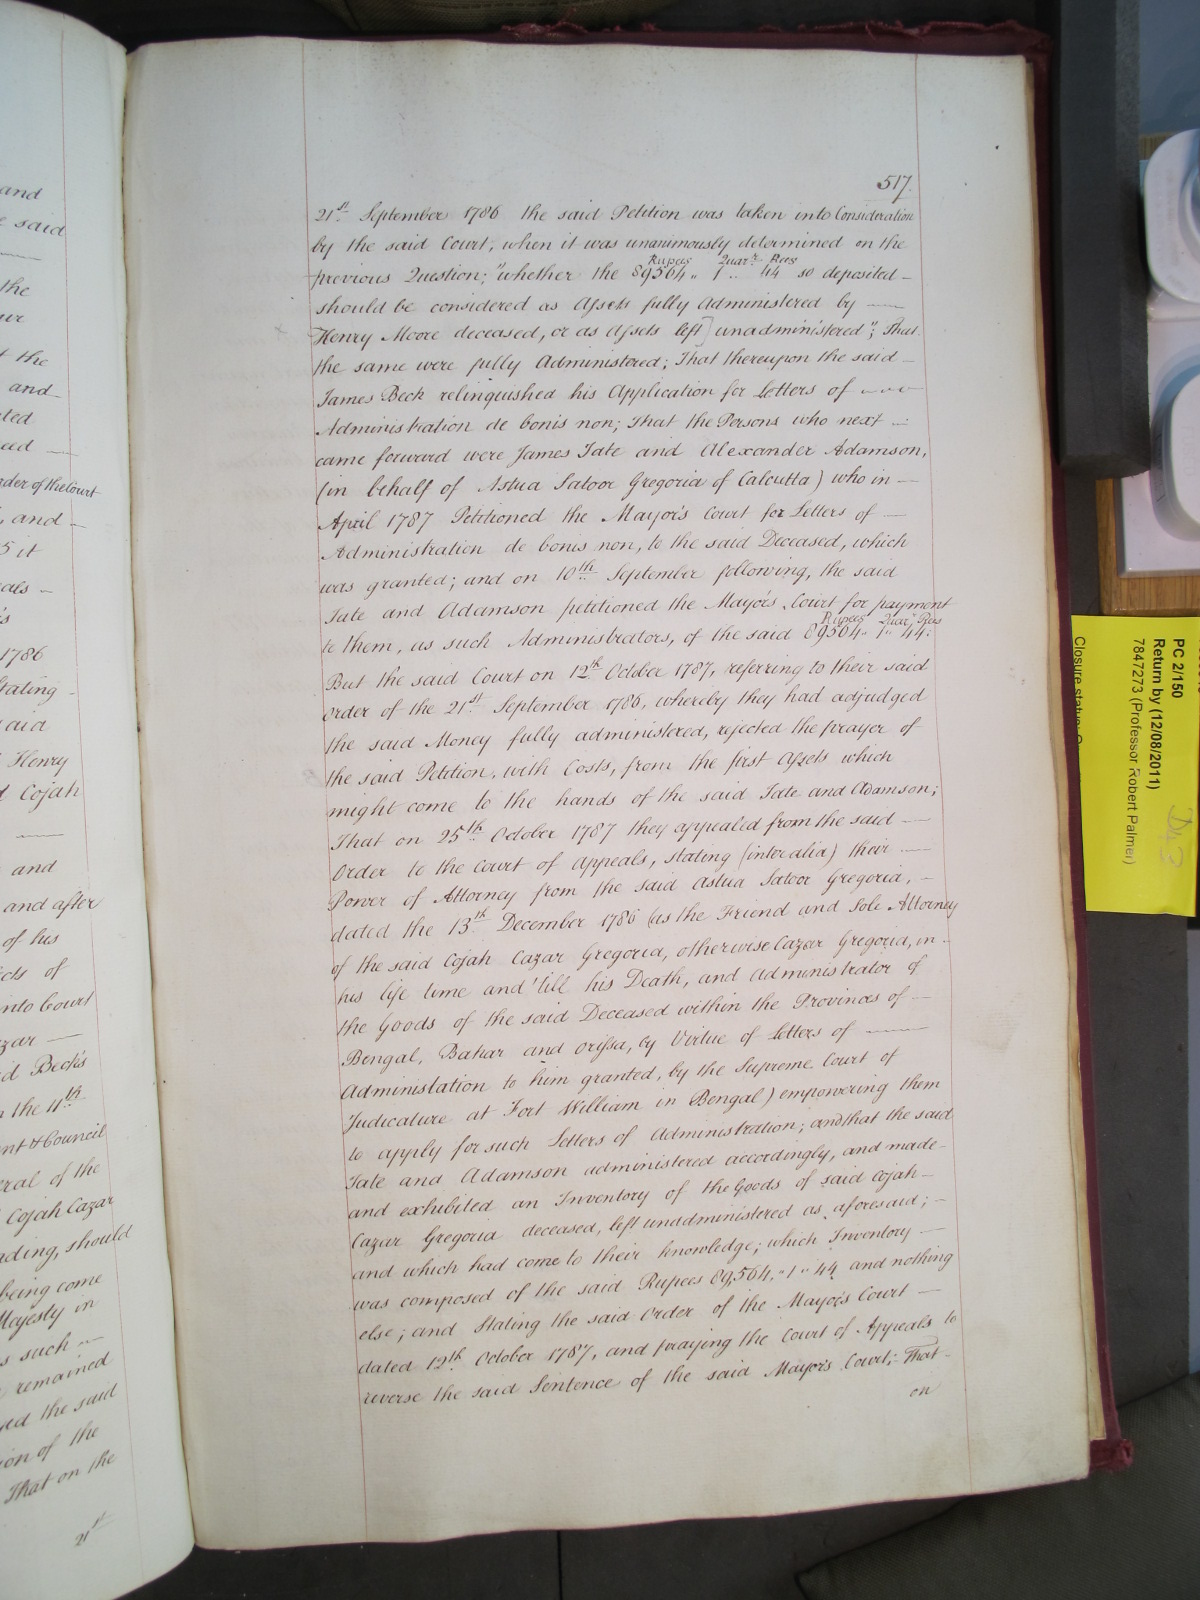 and
said
the
the
and
ted
der of the Court
and
5 it
1786
stating
said
Henry
Cojah
and
and after
of his
of
into Court
d Beck's
the 11th
nt & Council
eral of the
Cojah Cazar
ading, should
being come
Majesty in
s such
remained
the said
ion of the
That on the
21st
517.
21st. September 1786 the said Petition was taken into Consideration
by the said Court, when it was unanimously determined on the
Rupees Quar.rs Reas
previous Question; "whether the 89564.. 1.. 44 so deposited –
should be considered as Assets fully Administered by —
Henry Moore deceased, or as Assets left] unadministered"; That
the same were fully Administered; That thereupon the said –
James Beck relinquished his Application for Letters of ~~~
Administration de bonis non; That the Persons who next —
came forward were James Tate and Alexander Adamson,
(in behalf of Astua Satoor Gregoria of Calcutta) who in —
April 1787 Petitioned the Mayor's Court for Letters of —
Administration de bonis non, to the said Deceased, which
was granted; and on 10th. September following, the said
Tate and Adamson petitioned the Mayor's Court for payment
Rupees Quar.rs Reas
to them, as such Administrators, of the said 89564.. 1.. 44:
But the said Court on 12th October 1787, referring to their said
order of the 21st. September 1786, whereby they had adjudged
the said Money fully administered, rejected the prayer of
the said Petition, with Costs, from the first Assets which
might come to the hands of the said Tate and Adamson;
That on 25th. October 1787 they appealed from the said —
Order to the Court of Appeals, stating (inter alia) their —
Power of Attorney from the said Astua Satoor Gregoria, –
dated the 13th. December 1786 (as the Friend and Sole Attorney
of the said Cojah Cazar Gregoria, otherwise Cazar Gregoria, in –
his life time and 'till his Death, and Administrator of
the Goods of the said Deceased within the Provinces of —
Bengal, Bahar and Orissa, by Virtue of Letters of —
Administation to him granted, by the Supreme Court of
Judicature at Fort William in Bengal) empowering them
to apply for such Letters of Administration; and that the said
Tate and Adamson administered accordingly, and made –
and exhibited an Inventory of the Goods of said Cojah –
Cazar Gregoria deceased, left unadministered as aforesaid; –
and which had come to their knowledge; which Inventory —
was composed of the said Rupees 89,564,"1"44 and nothing
else; and stating the said Order of the Mayor's Court —
dated 12th. October 1787, and praying the Court of Appeals to
reverse the said Sentence of the said Mayor's Court; That –
on
PC 2/150
Return by (12/08/2011)
7847273 (Professor Robert Palmer)